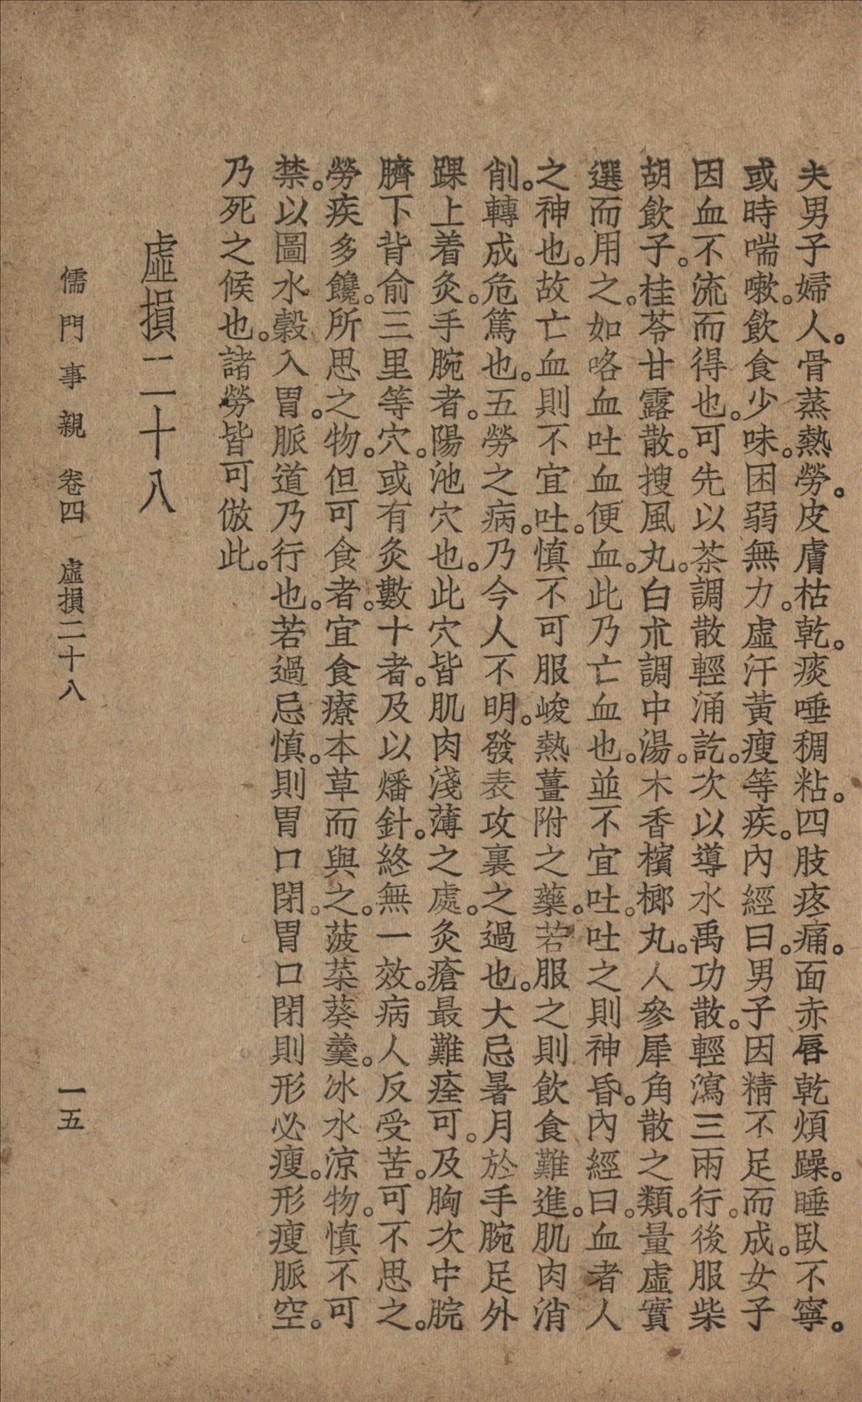 夫男子婦人。骨蒸熱勞。皮膚枯乾。痰唾稠粘。四肢疼痛。面赤唇乾煩躁。睡臥不寧。
或時喘嗽。飲食少味。困弱無力。虛汗黃瘦等疾。內經曰。男子因精不足而成。女子
因血不流而得也。可先以茶調散輕涌訖。次以導水禹功散。輕瀉三兩行。後服柴
胡飲子。桂苓甘露散。搜風丸。白朮調中湯。木香檳榔丸。人參犀角散之類。量虛實
選而用之。如咯血吐血便血。此乃亡血也。並不宜吐。吐之則神昏。內經曰。血者人
之神也。故亡血則不宜吐。慎不可服峻熱薑附之藥。若服之則飲食難進。肌肉消
削。轉成危篤也。五勞之病。乃今人不明。發表攻裏之過也。大忌暑月於手腕足外
踝上着灸。手腕者。陽池穴也。此穴皆肌肉淺薄之處。灸瘡最難痊可。及胸次中脘
臍下背俞三里等穴。或有灸數十者。及以燔針。終無一效。病人反受苦。可不思之。
勞疾多饞。所思之物。但可食者。宜食療本草而與之。菠菜葵羹。冰水涼物。慎不可
禁。以圖水穀入胃。脈道乃行也。若過忌慎。則胃口閉。胃口閉則形必瘦。形瘦脈空。
乃死之候也。諸勞皆可倣此。
虛損二十八
儒門事親 卷四 虛損二十八 一五